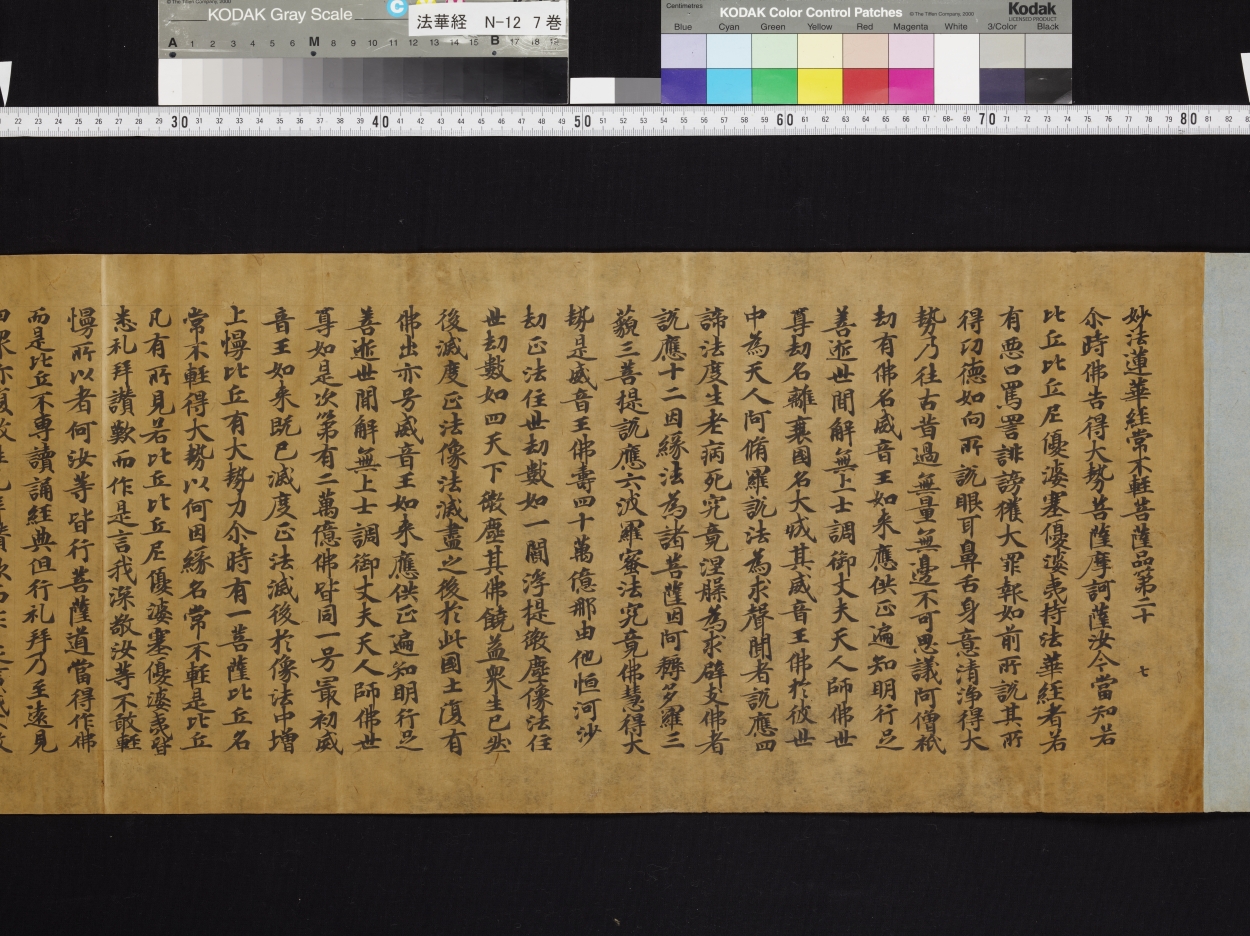 KODAK Gray Scale
© The Tiffen Company, 2000
C
法華経 N-12 7巻
A 1 2 3 4 5 6 M 8 9 10 11 12 13 14 15 B 17 18 19
Centimetres
KODAK Color Control Patches
© The Tiffen Company, 2000
Kodak
LICENSED PRODUCT
Blue Cyan Green Yellow Red Magenta White 3/Color Black
22 23 24 25 26 27 28 29 30 31 32 33 34 35 36 37 38 39 40 41 42 43 44 45 46 47 48 49 50 51 52 53 54 55 56 57 58 59 60 61 62 63 64 65 66 67 68 69 70 71 72 73 74 75 76 77 78 79 80 81 82
妙法蓮華経常不軽菩薩品第二十 七
尒時佛告得大勢菩薩摩訶薩汝今當知若
比丘比丘尼優婆塞優婆夷持法華経者若
有悪口罵詈誹謗獲大罪報如前所説其所
得功徳如向所説眼耳鼻舌身意清浄得大
勢乃往古昔過無量無邊不可思議阿僧祇
劫有佛名威音王如来應供正遍知明行足
善逝世間解無上士調御丈夫天人師佛世
尊劫名離衰國名大成其威音王佛於彼世
中為天人阿脩羅説法為求聲聞者説應四
諦法度生老病死究竟涅槃為求辟支佛者
説應十二因縁法為諸菩薩因阿耨多羅三
藐三菩提説應六波羅蜜法究竟佛慧得大
勢是威音王佛壽四十萬億那由他恒河沙
劫正法住世劫數如一閻浮提微塵像法住
世劫數如四天下微塵其佛饒益衆生已然
後滅度正法像法滅盡之後於此國土復有
佛出亦号威音王如来應供正遍知明行足
善逝世間解無上士調御丈夫天人師佛世
尊如是次第有二萬億佛皆同一号最初威
音王如来既已滅度正法滅後於像法中増
上慢比丘有大勢力尒時有一菩薩比丘名
常不軽得大勢以何因縁名常不軽是比丘
凡有所見若比丘比丘尼優婆塞優婆夷皆
悉礼拜讃歎而作是言我深敬汝等不敢軽
慢所以者何汝等皆行菩薩道當得作佛
而是比丘不専讀誦経典但行礼拜乃至遠見